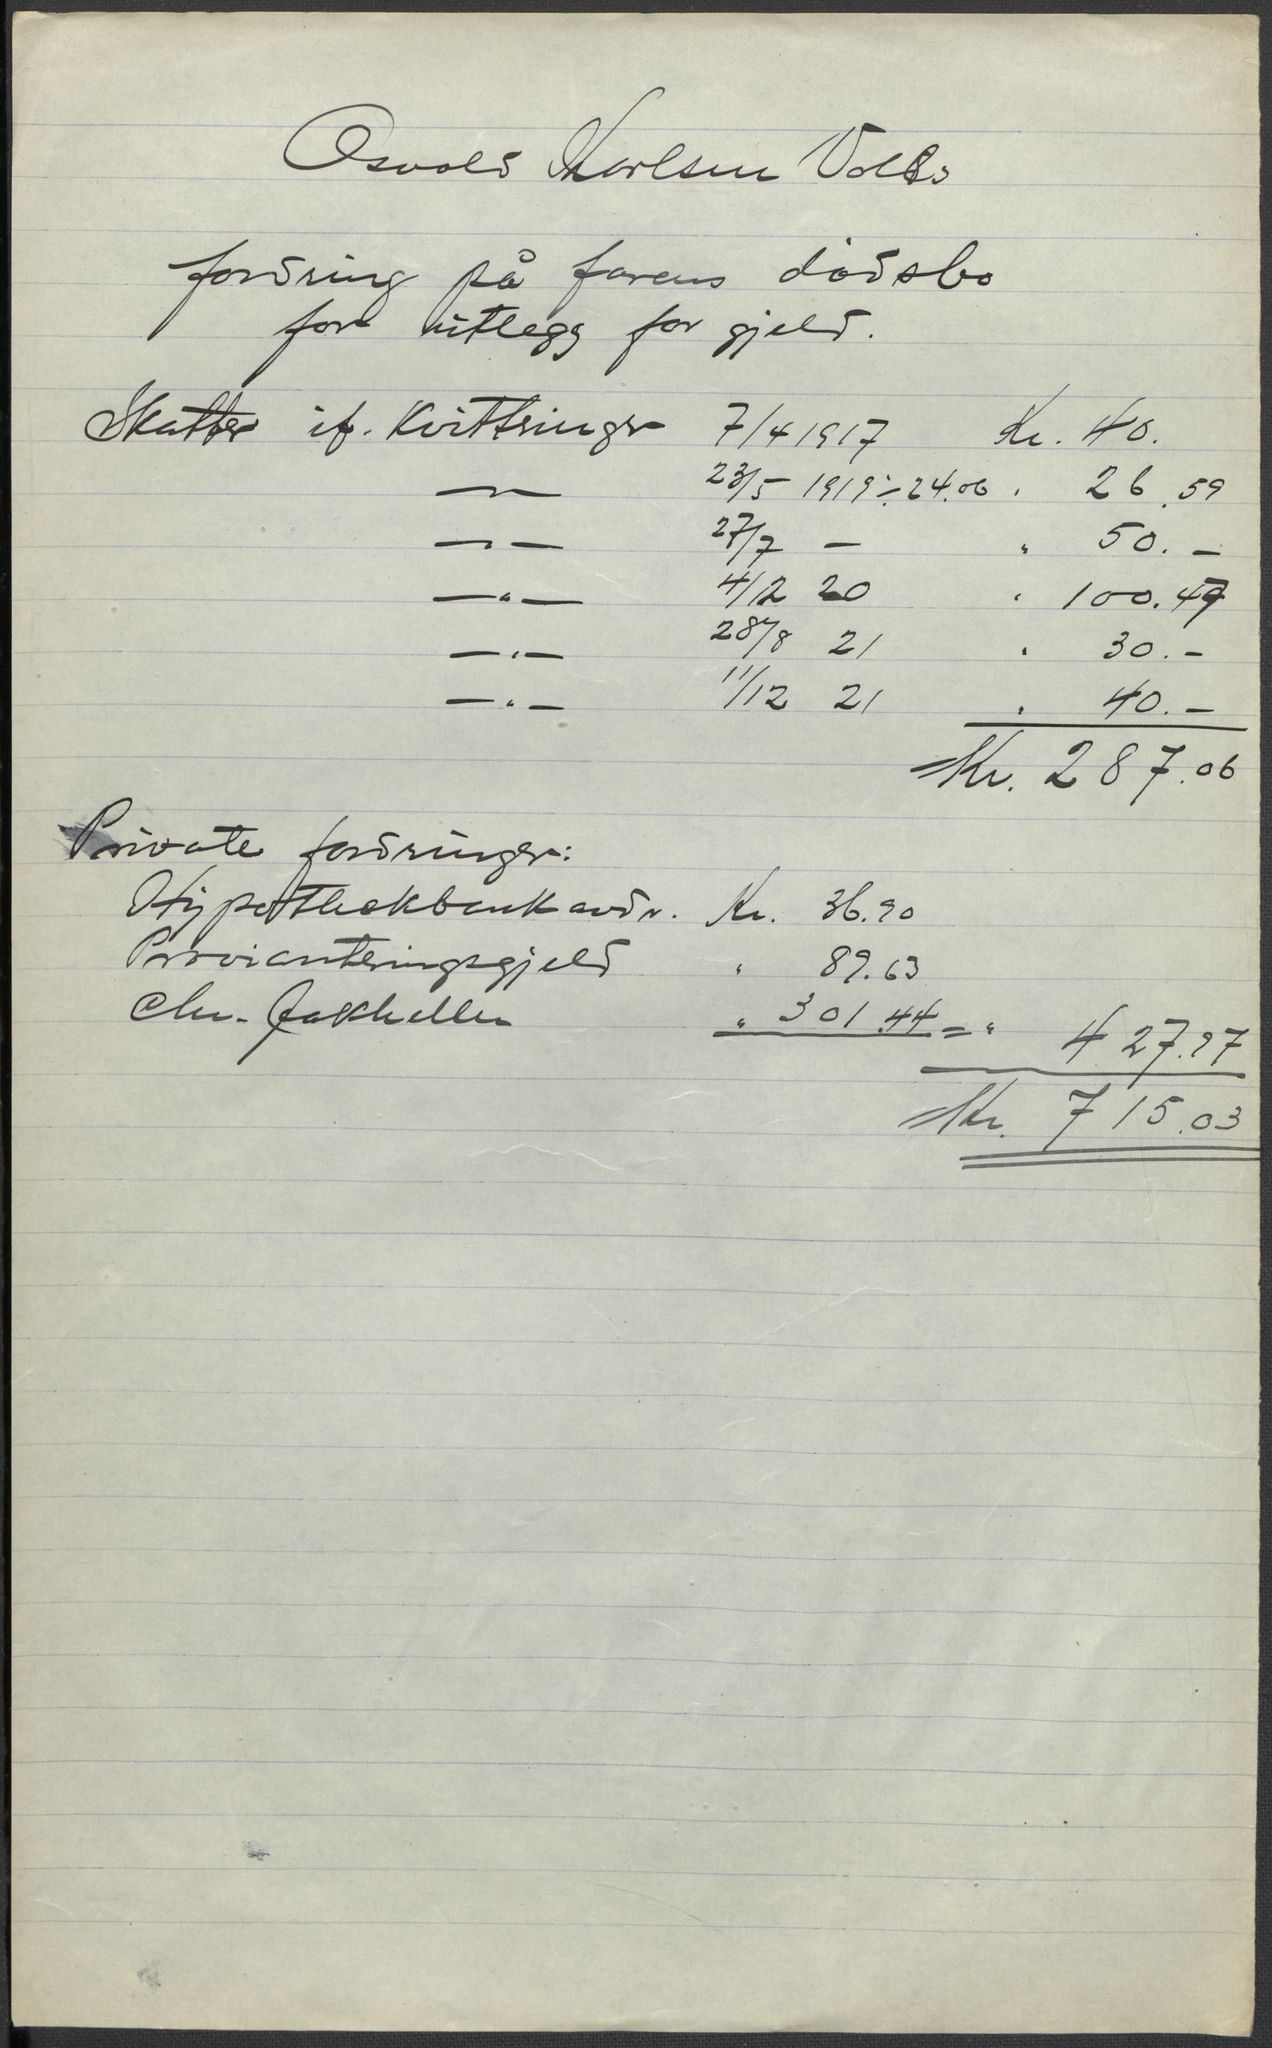 Osvald Karlsen Vollds
fordring på farens dödsbo
for utlegg for gjeld.
Skatter if. Kvittringer 7/4 1917 Kr. 40.
—"— 23/5 1919 ÷ 24.06 " 26.59
—"— 27/7 — " 50.—
—"— 4/2 20 " 100.47
—"— 28/8 21 " 30.—
—"— 11/12 21 " 40.—
Kr. 287.06
Private fordringer:
Hypothekbank avdr. Kr. 36.90
Provianteringsgjeld " 89.63
Chr. Jakhelln " 301.44 = " 427.97
Kr. 715.03